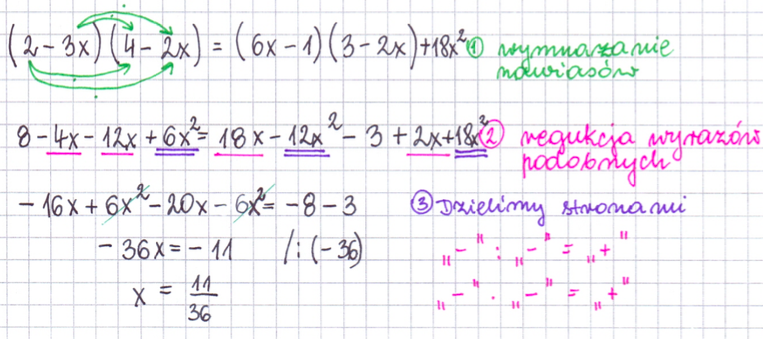 (2 - 3x)(4 - 2x) = (6x - 1)(3 - 2x) + 18x² ① wymnażanie
nawiasów
8 - 4x - 12x + 6x² = 18x - 12x² - 3 + 2x + 18x² ② regukcja wyrazów
podobnych
- 16x + 6x² - 20x - 6x² = - 8 - 3 ③ Dzielimy stronami
- 36x = - 11 /: (-36) „-" : „-" = „+"
x = 11/36 „-" · „-" = „+"